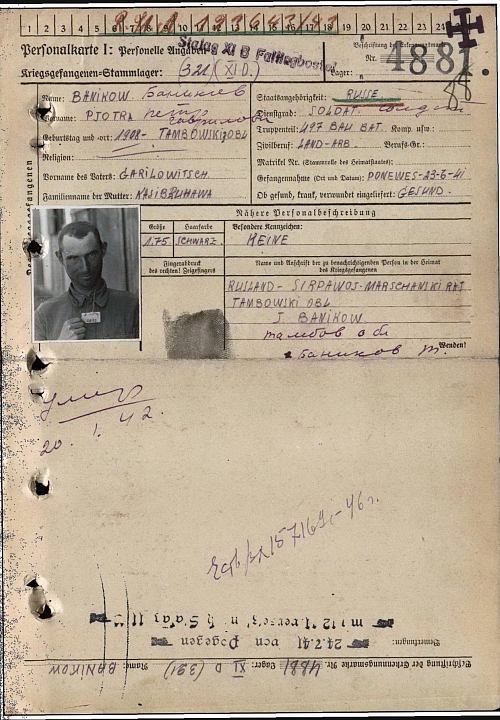 1 2 3 4 5 6 7 8 9 10 11 12 13 14 15 16 17 18 19 20 21 22 23 24 25
Personalkarte I: Personelle Angaben
Stalag XI B Fallingbostel
Beschriftung der Erkennungsmarke
Kriegsgefangenen-Stammlager:
(321) (XI D.)
Nr. 4881.
Lager:
Name: BANIKOW Баников
Vorname: PJOTRA Петр
Geburtstag und -ort: 1908- TAMBOWSKI OBL
Religion:
Vorname des Vaters: GARILOWITSCH
Familienname der Mutter:
Staatsangehörigkeit: RUSSE
Dienstgrad: SOLDAT. солдат
Truppenteil: 497 BAU BAT. Komp. usw.:
Zivilberuf: LAND-ARB. Berufs-Gr.:
Matrikel Nr. (Stammrolle des Heimatstaates):
Gefangennahme (Ort und Datum): PONEWES-23-6-41
Ob gesund, krank, verwundet eingeliefert: GESUND.
Nähere Personalbeschreibung
Größe
Haarfarbe
Besondere Kennzeichen:
1.75
SCHWARZ.
KEINE
Fingerabdruck
des rechten! Zeigefingers
Name und Anschrift der zu benachrichtigenden Person in der Heimat
des Kriegsgefangenen
RUSLAND- SIRPAWOS-MARSCHANSKI RAJ
TAMBOWSKI OBL.
J. BANIKOW
тамбов обл
Баников Т.
Wenden!
Умер
20. 1. 42.
46 г.
24.7.41 von Pogegen
Bemerkungen:
Beschriftung der Erkennungsmarke Nr. 4881 Lager: XI D (321) Name: BANIKOW